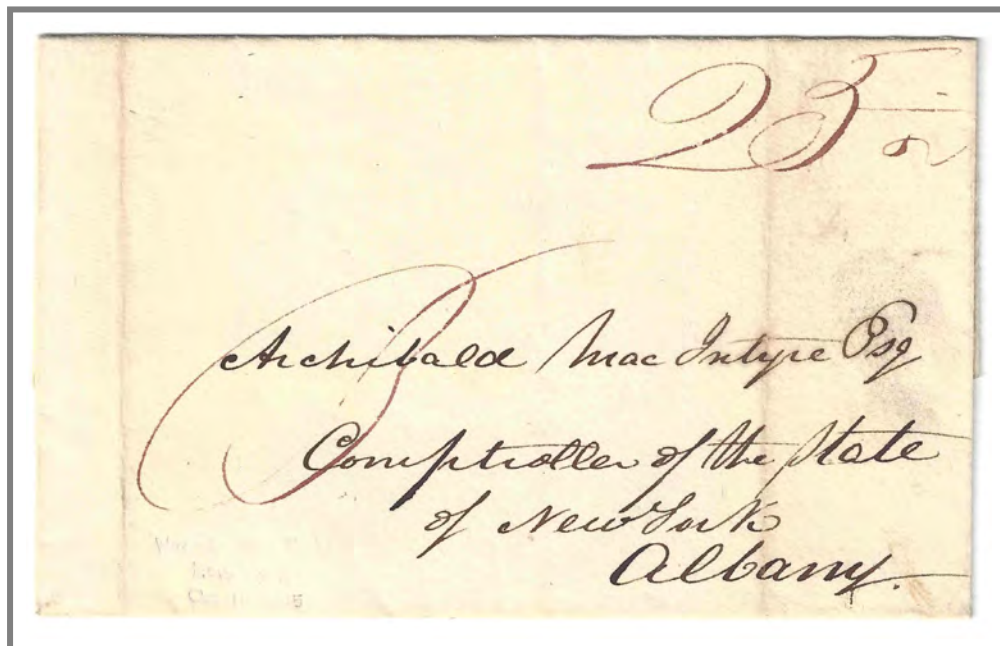 25
Archibald MacIntyre Esq
Comptroller of the State
of New York
Albany.